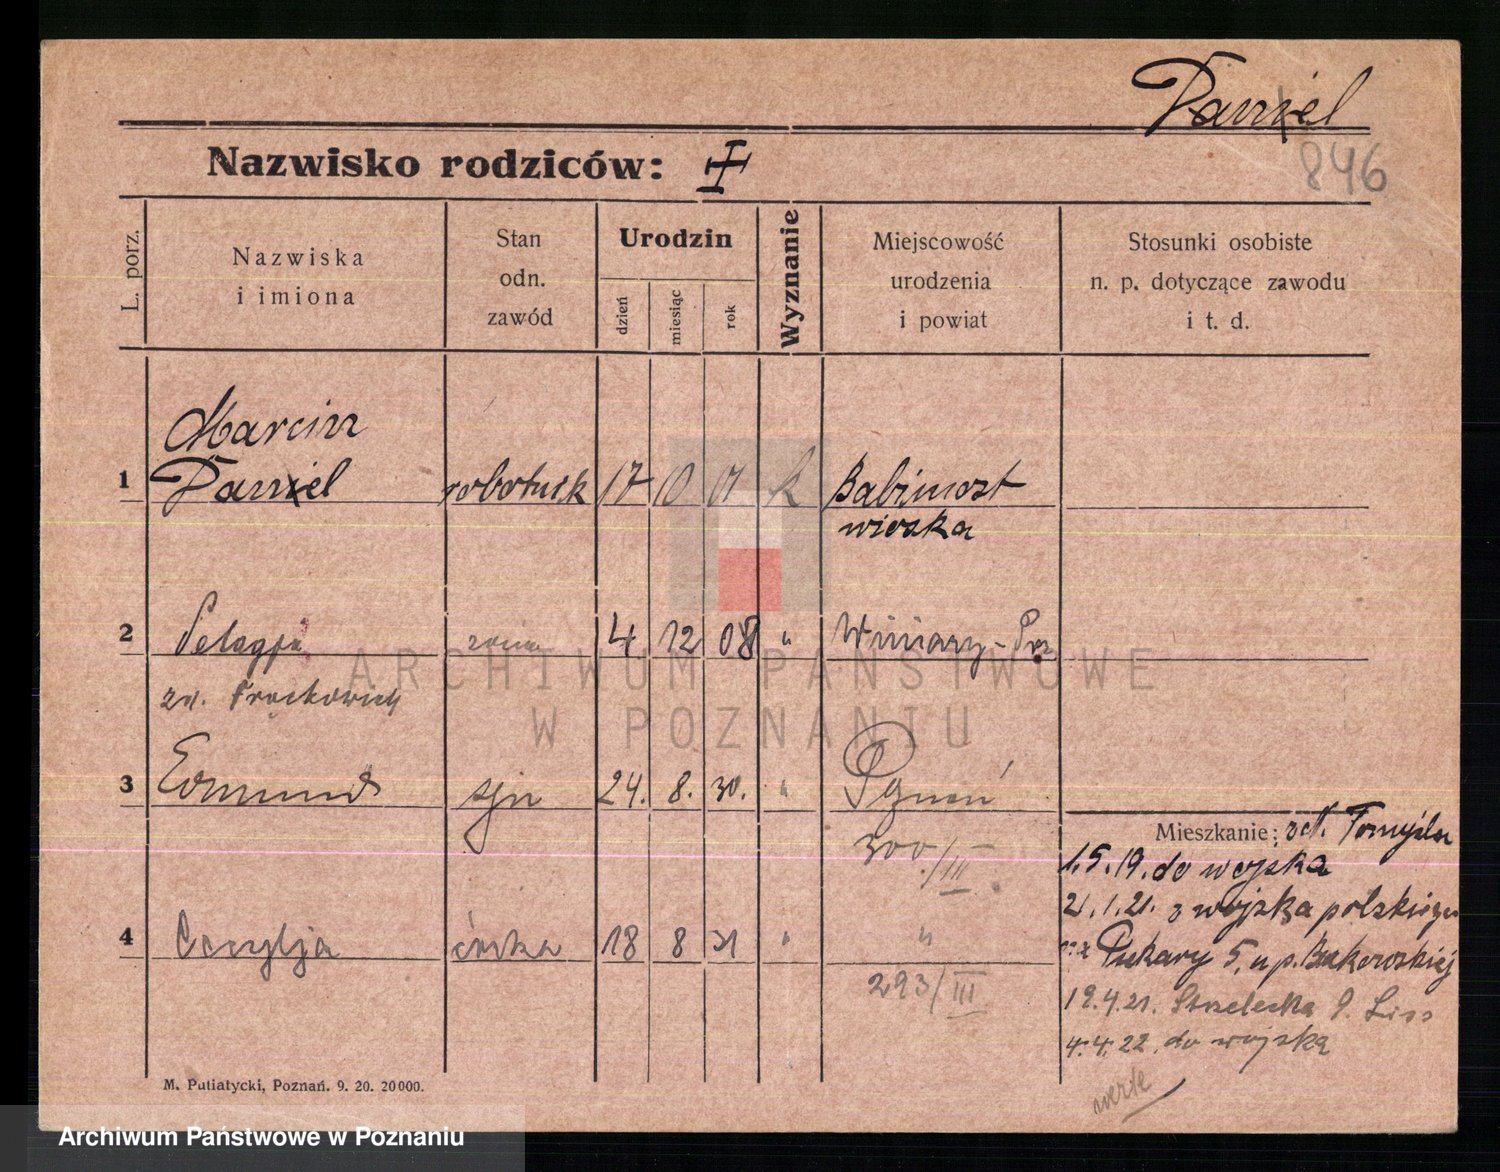 Daniel
846
Nazwisko rodziców:
L. porz.
Nazwiska
i imiona
Stan
odn.
zawód
Urodzin
dzień
miesiąc
rok
Wyznanie
Miejscowość
urodzenia
i powiat
Stosunki osobiste
n. p. dotyczące zawodu
i t. d.
Marcin
1 Daniel robotnik 17 10 01 k Babimost
wioska
2 Pelagja żona 4 12 08 " Winiary - Poz
zd. Frąckowiak
3 Edmund syn 24. 8. 30. " Poznań
300/III
4 Cecylja córka 18 8 31 " "
293/III
Mieszkanie: z N. Tomyśla
1.5.19. do wojska
21.1.21. z wojska polskiego
Piekary 5, u p. Bukowskiej
19.4.21. Strzelecka 9. Liss
4.4.22. do wojska
M. Putiatycki, Poznań. 9. 20. 20000.
ARCHIWUM PAŃSTWOWE
W POZNANIU
Archiwum Państwowe w Poznaniu